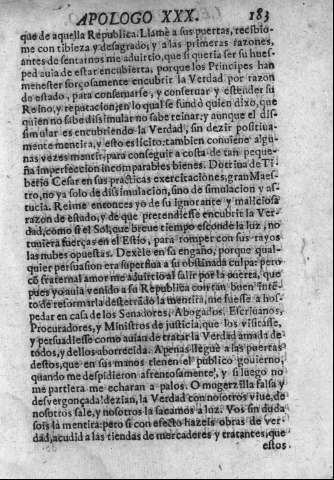 APOLOGO XXX. 183
que de aquella Republica. Llamè a sus puertas, recibio-
me con tibieza y desagrado; y a las primeras razones,
antes de sentarnos me aduirtio, que si queria ser su hues-
ped auia de estar encubierta; porque los Principes han
menester forçosamente encubrir la Verdad por razon
de estado, para conseruarse, y conseruar y estender su
Reino, y reputacion; en lo qual se fundò quien dixo, que
quien no sabe dissimular no sabe reinar; y aunque el dis-
simular es encubriendo la Verdad, sin dezir positiua-
mente mentira, y esto es licito: tambien conuiene algu-
nas vezes mentir, para conseguir a costa de tan peque-
ña imperfeccion incomparables bienes. Dotrina de Ti-
berio Cesar en sus practicas exercitaciones, gran Maes-
tro, no ya solo de dissimulacion, sino de simulacion y as-
tucia. Reime entonces yo de su ignorante y maliciosa
razon de estado, y de que pretendiesse encubrir la Ver-
dad, como si el Sol, que breue tiempo esconde la luz, no
tuuiera fuerças en el Estio, para romper con sus rayos
las nubes opuestas. Dexèle en su engaño, porque qual-
quier persuasion era superflua a su obstinada culpa: pero
cō fraternal amor me aduirtio al salir por la puerta, que
pues yo auia venido a su Republica con tan buen inte-
to de reformarla desterrādo la mentira, me fuesse a hos-
pedar en casa de los Senadores, Abogados, Escriuanos,
Procuradores, y Ministros de justicia, que los visitasse,
y persuadiesse como auian de tratar la Verdad amada de
todos, y dellos aborrecida. Apenas lleguè a las puertas
destos, que en sus manos tienen el publico gouierno,
quando me despidieron afrentosamente, y si luego no
me partiera me echaran a palos. O mugerzilla falsa y
desvergonçada! dezian, la Verdad con nosotros viue, de
nosotros sale, y nosotros la sacamos a luz. Vos sin duda
sois la mentira: pero si con efecto hazeis obras de ver-
dad, acudid a las tiendas de mercaderes y tratantes, que
estos